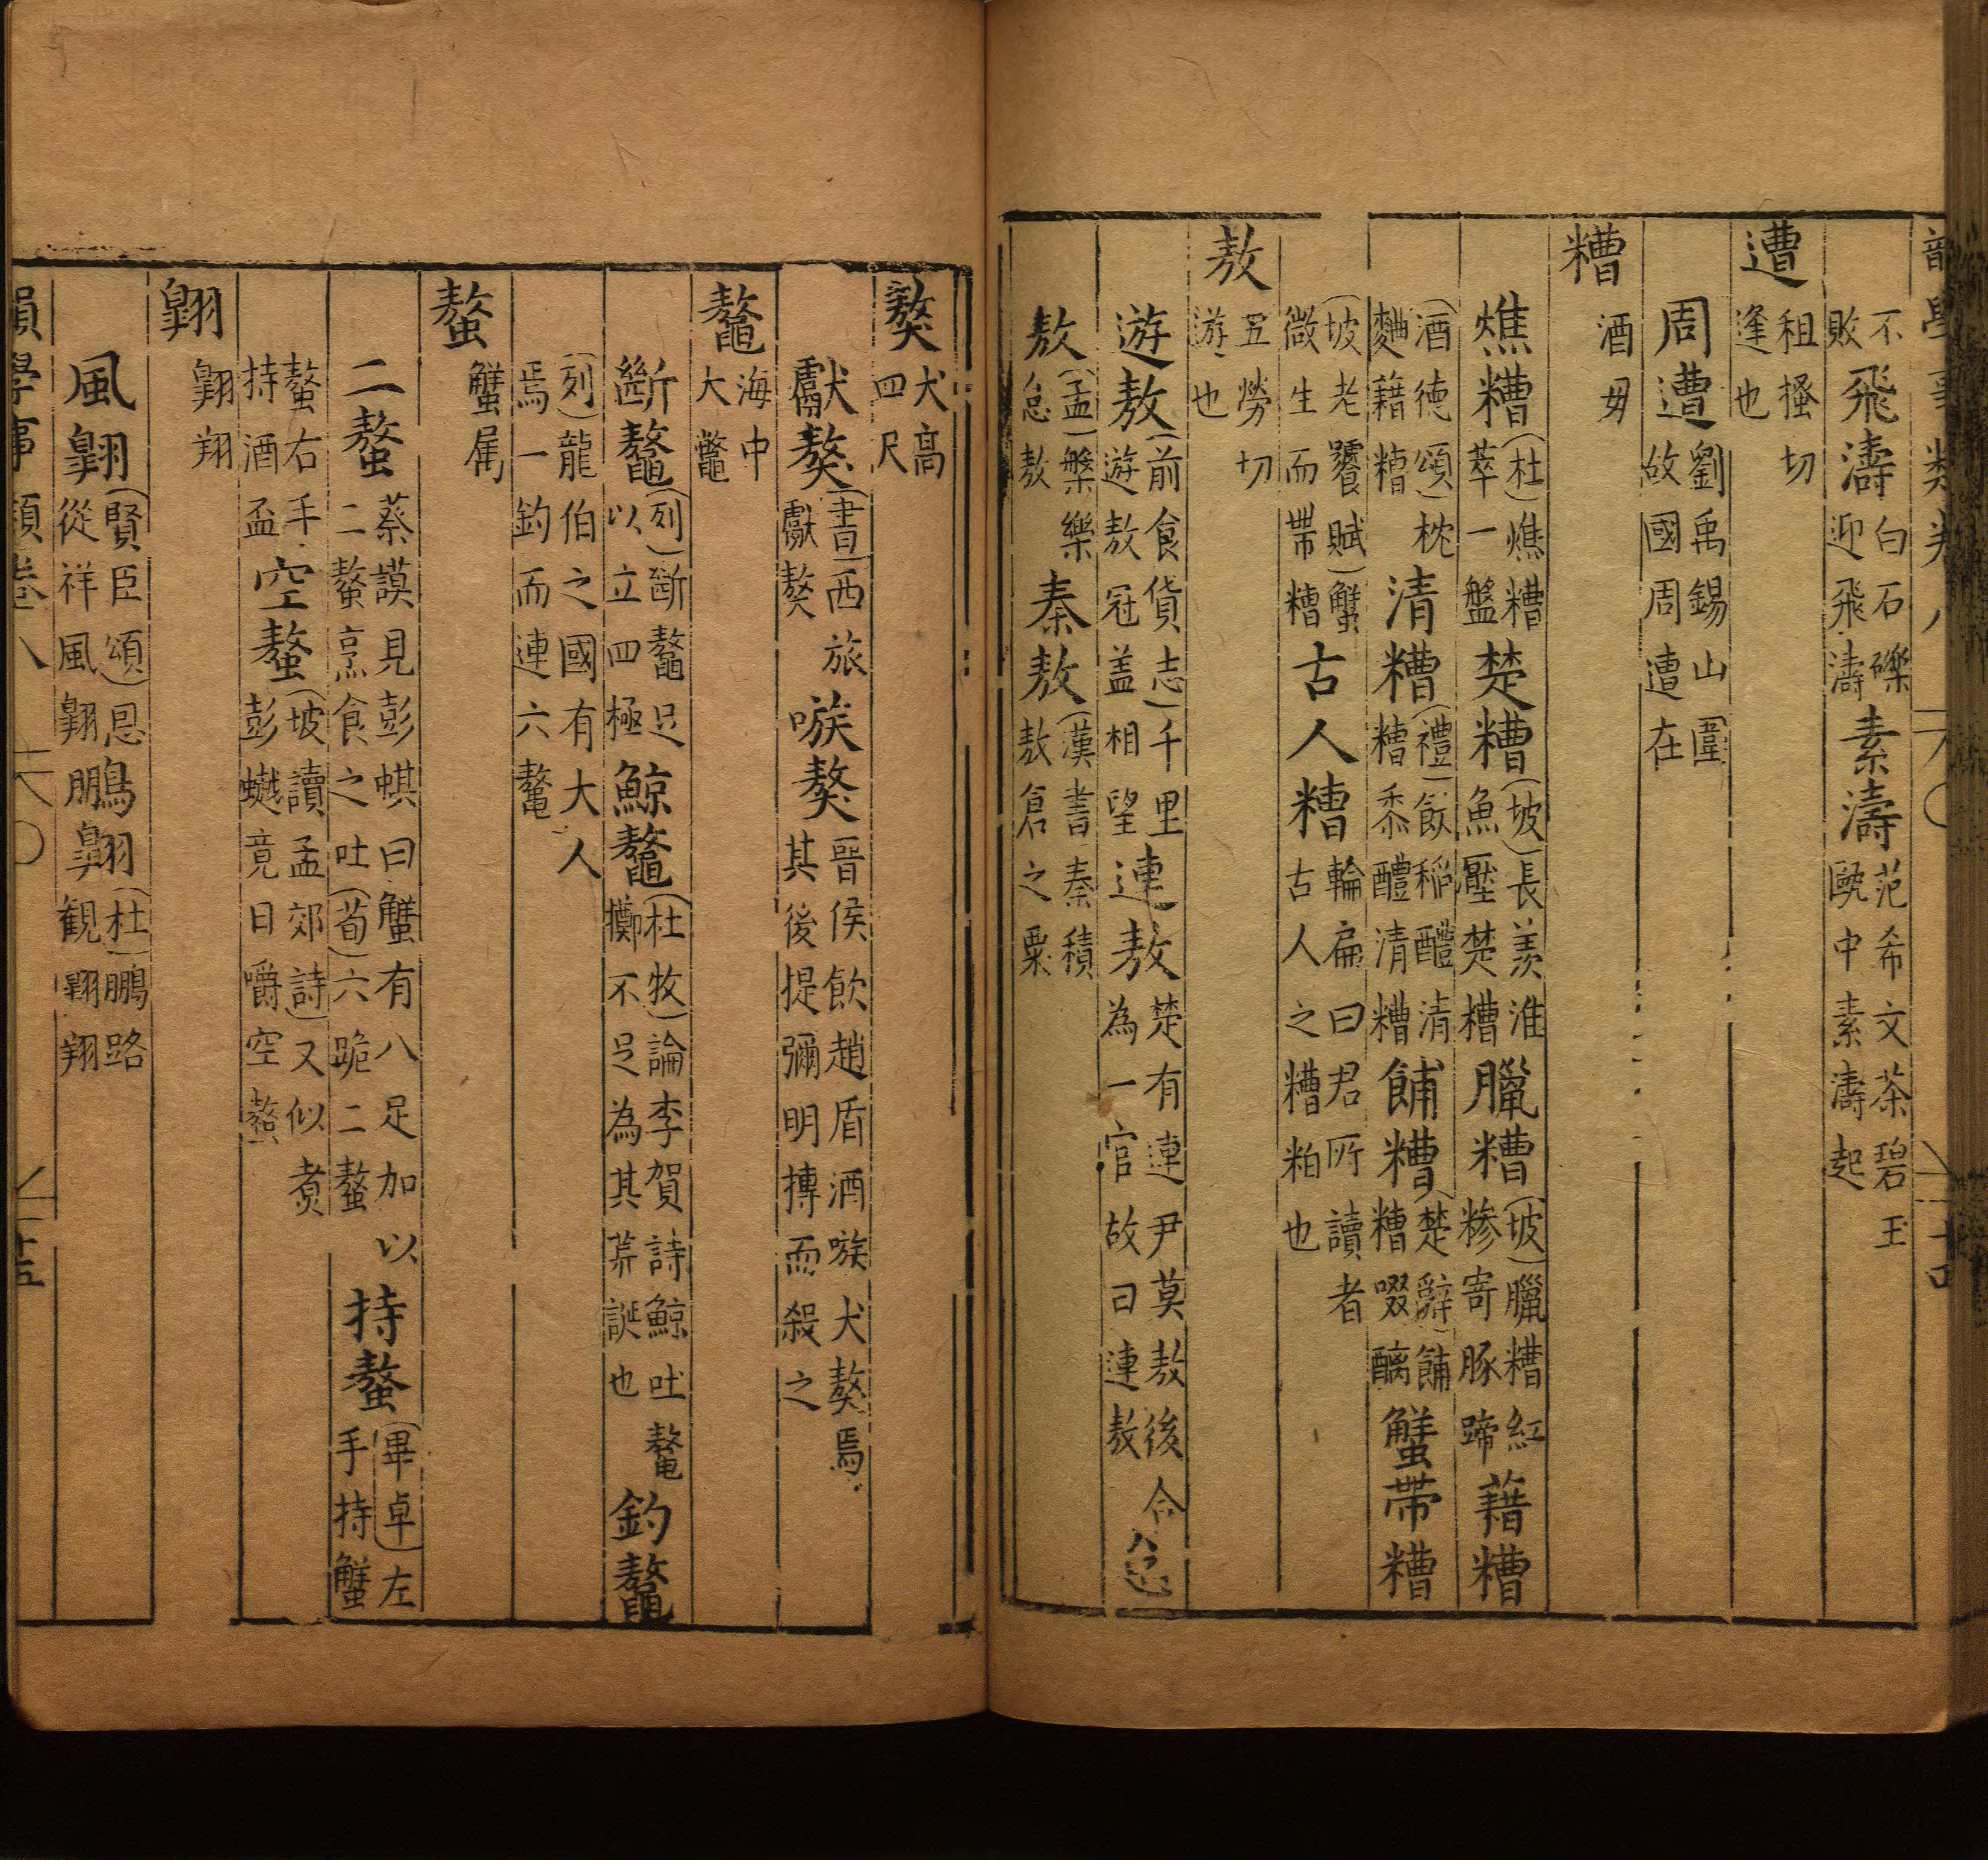 不敗飛濤白石礫迎飛濤素濤范希文茶碧玉甌中素濤起
遭祖搔切逢也
周遭劉禹錫山圍故國周遭在
糟酒毋
燋糟(杜)燋糟萃一盤楚糟(坡)長羨淮魚壓楚糟臘糟(坡)臘糟紅糝寄豚蹄藉糟
(酒徳頌)枕麯藉糟清糟(禮)飲稲醴清糟黍醴清糟餔糟(楚辭)餔糟啜醨蟹帶糟
(坡老饕賦)蟹微生而帶糟古人糟輪扁曰君所讀者古人之糟粕也
敖五勞切游也
遊敖(前食貨志)千里遊敖冠盖相望連敖楚有連尹莫敖後合為一官故曰連敖怠
敖(孟)槃樂怠敖秦敖(漢書)秦積敖倉之粟
獒犬高四尺
獻獒(書)西旅獻獒嗾獒晉侯飲趙盾酒嗾犬獒焉其後提彌明摶而殺之
鼇海中大鼈
斷鼇(列)斷鼇足以立四極鯨鼇(杜牧)論李賀詩鯨吐鼇擲不足為其荒誕也釣鼇
(列)龍伯之國有大人焉一釣而連六鼇
螯蟹属
二螯蔡謨見彭蜞曰蟹有八足加以二螯烹食之吐(荀)六跪二螯持螯(畢卓)左手持蟹
螯右手持酒盃空螯(坡讀孟郊詩)又似煑彭𧑅竟日嚼空螯
翺翺翔
風翺(賢臣頌)恩從祥風翺鵬翺(杜)鵬路観翺翔
韻學事類卷八 十五